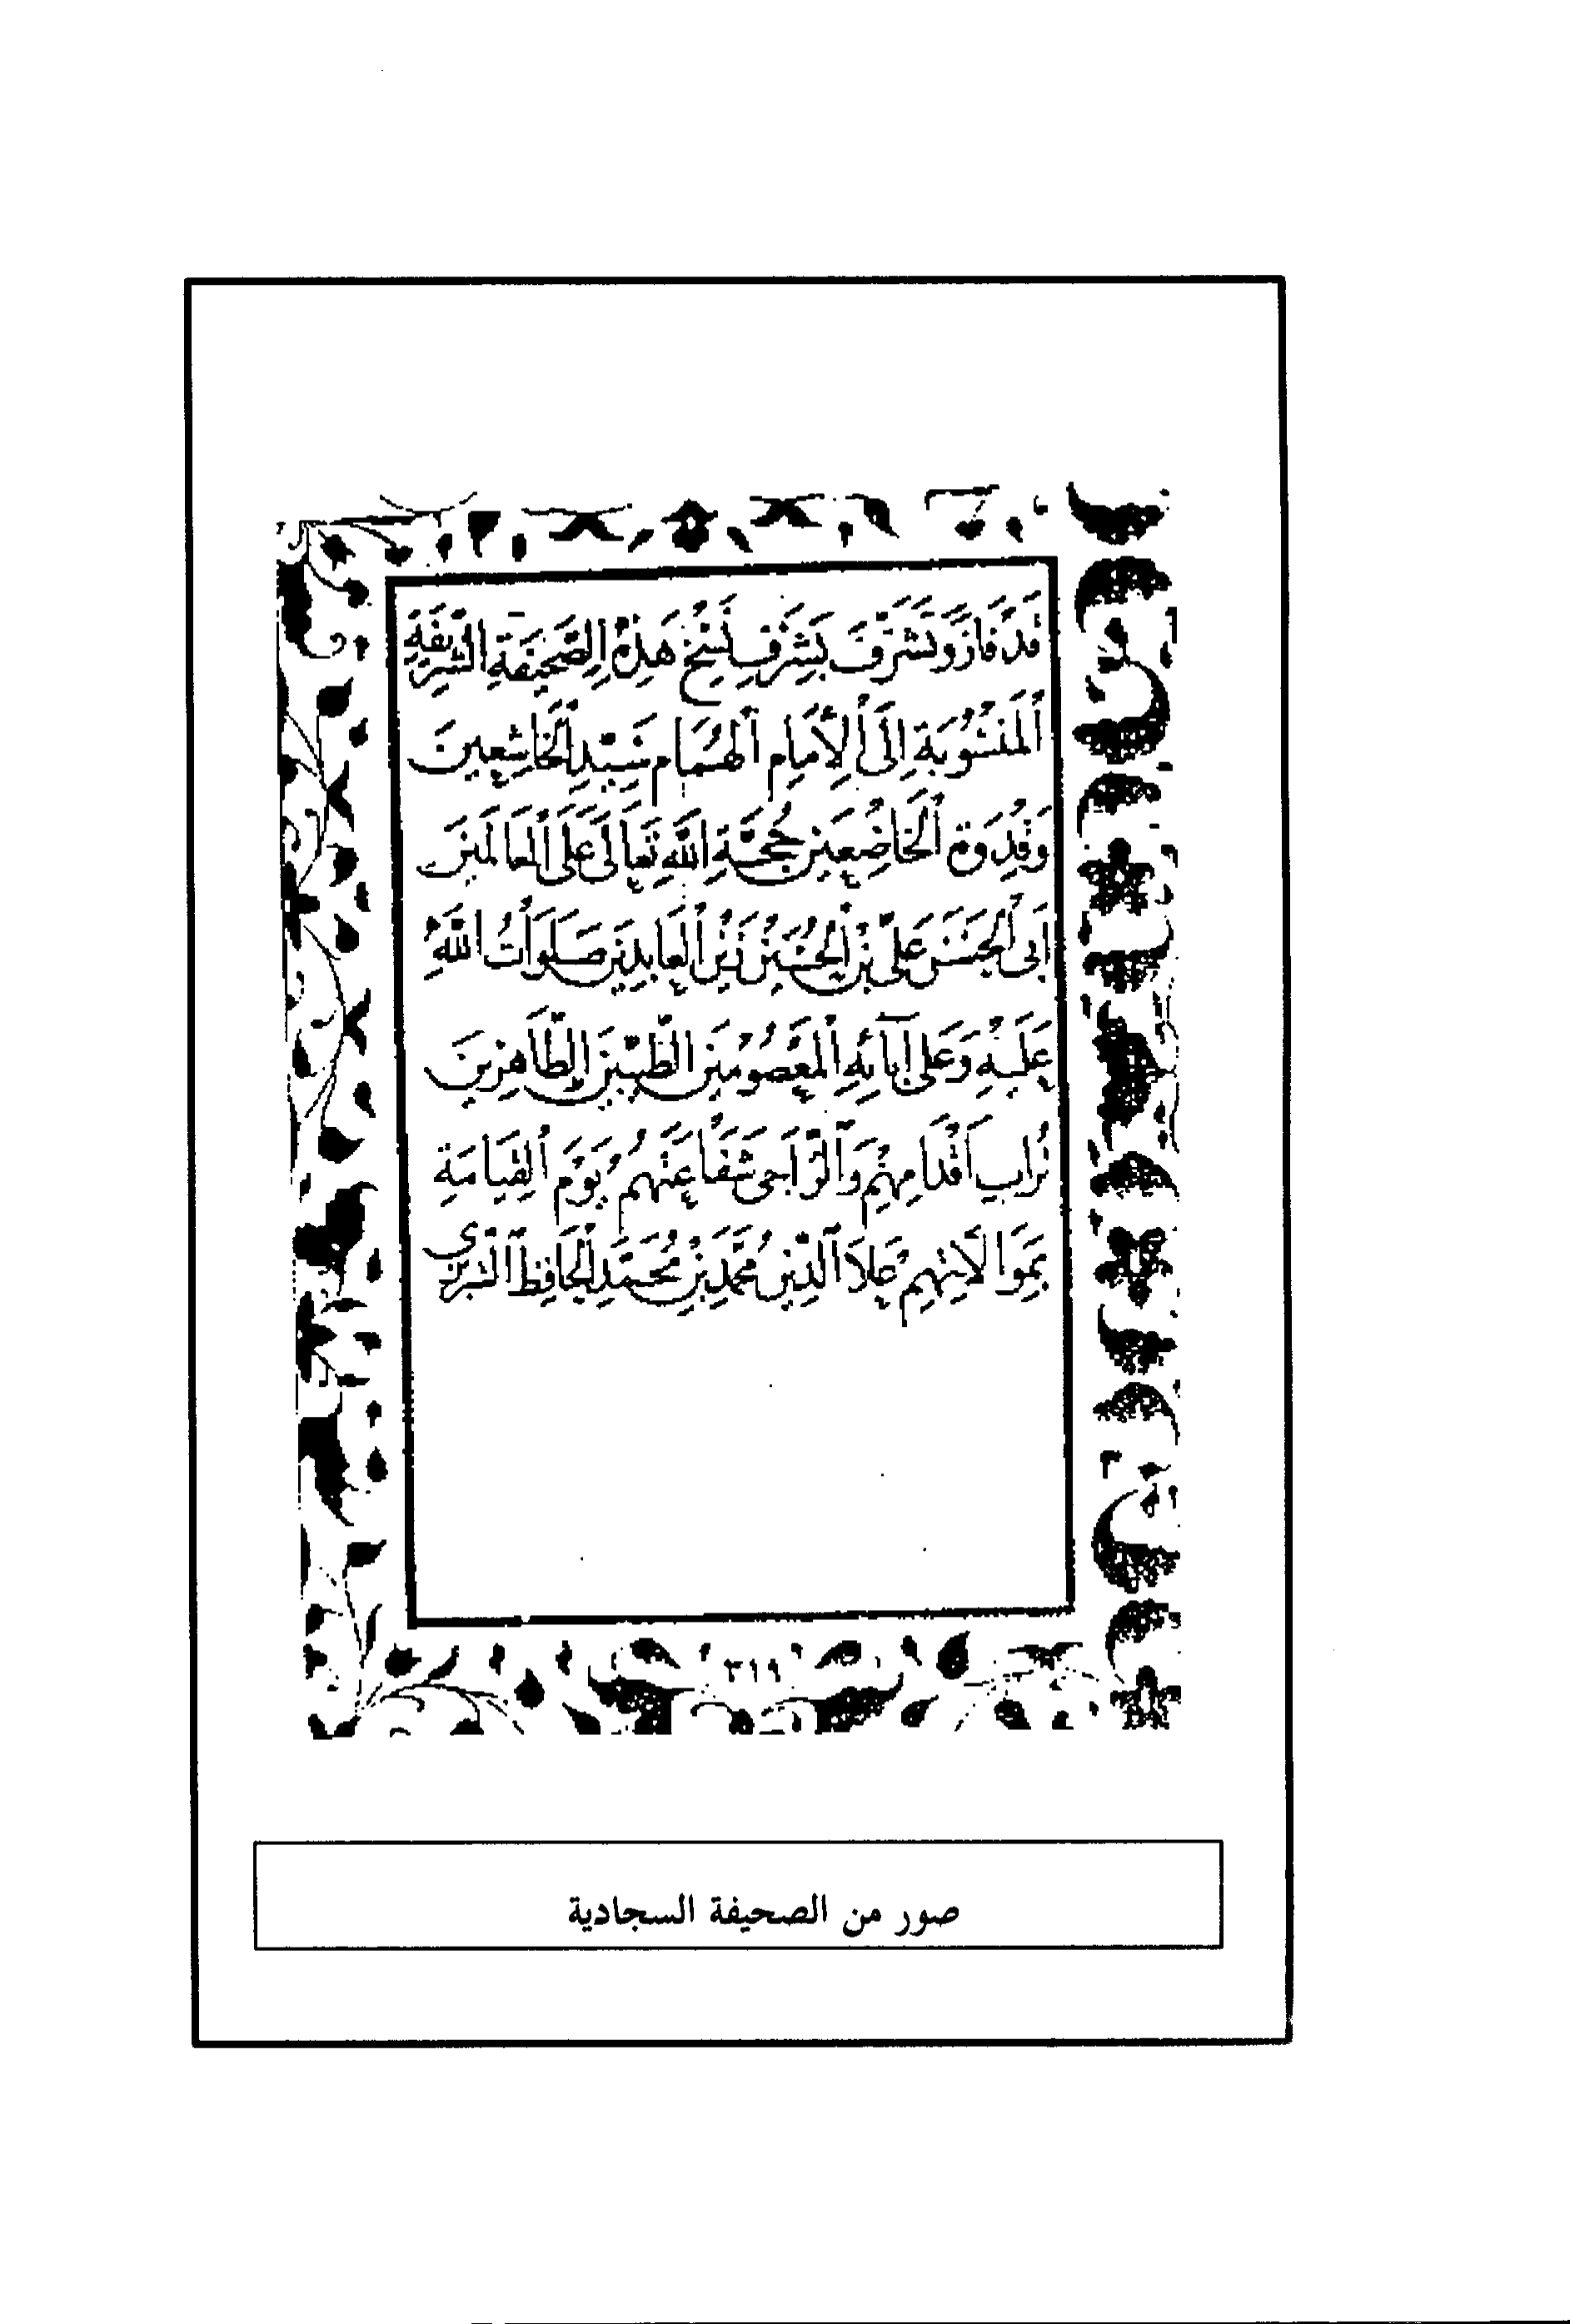 قَدْ فَازَ وَتَشَرَّفَ بِشَرَفِ نَسْخِ هَذِهِ الصَّحِيفَةِ الشَّرِيفَةِ
الْمَنْسُوبَةِ إِلَى الْأِمَامِ الْهُمَامِ سَيِّدِ الْخَاشِعِينَ
وَقُدْوَةِ الْخَاضِعِينَ حُجَّةِ اللَّهِ تَعَالَى عَلَى الْعَالَمِينَ
أَبِى الْحَسَنِ عَلِىِّ بْنِ الْحُسَيْنِ زَيْنِ الْعَابِدِينَ صَلَوَاتُ اللَّهِ
عَلَيْهِ وَعَلَى آبَائِهِ الْمَعْصُومِينَ الطَّيِّبِينَ الطَّاهِرِينَ
تُرَابِ أَقْدَامِهِمْ وَالرَّاجِى شَفَاعَتَهُمْ يَوْمَ الْقِيَامَةِ
بِمَوَالَاتِهِمْ عَلَاءُ الدِّينِ مُحَمَّدِ بْنِ مُحَمَّدِ الْحَافِظِ التَّبْرِيزِي
٣١٩
صور من الصحيفة السجادية